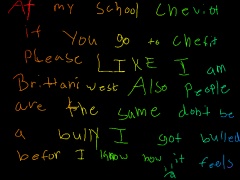 At my school Cheviot
if You go to chefit
Please LIKE I am
Brittani west Also People
are the same dont be
a bully I got bulled
befor I know how it feels